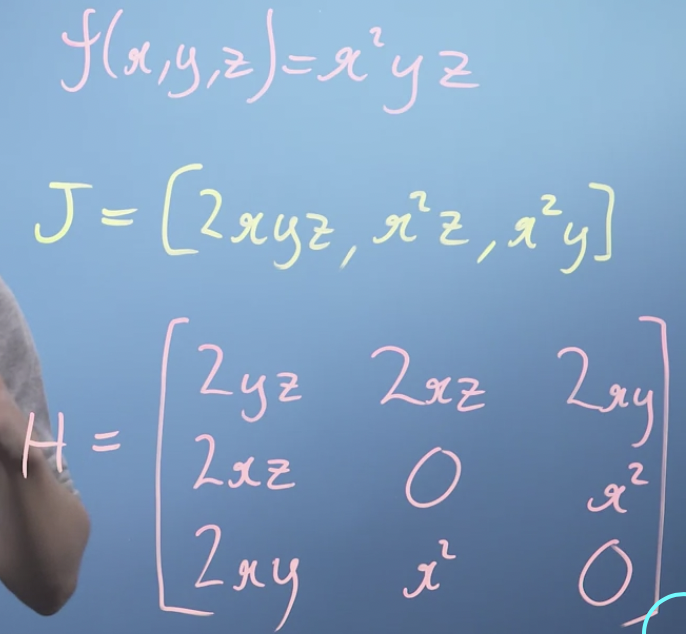 f(x,y,z)=x²yz
J=[2xyz, x²z, x²y]
H=[2yz 2xz 2xy
2xz 0 x²
2xy x² 0]